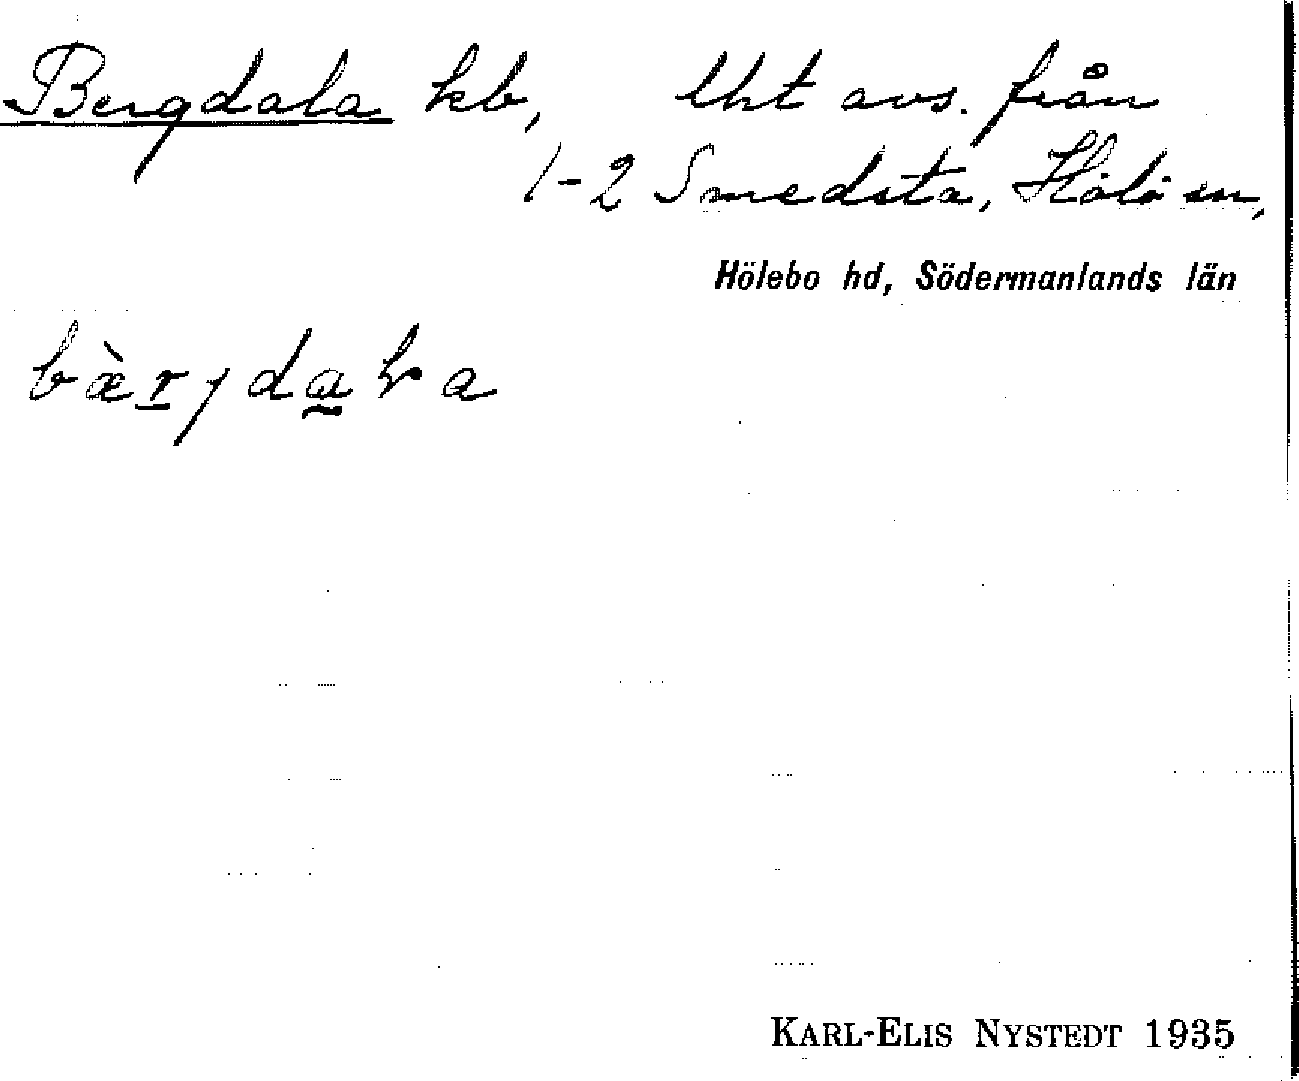 Bergdala kb, Uht avs. från
1-2 Smedsta, Hölö sn,
Hölebo hd, Södermanlands län
bæ̀rjdaɫa
KARL-ELIS NYSTEDT 1935